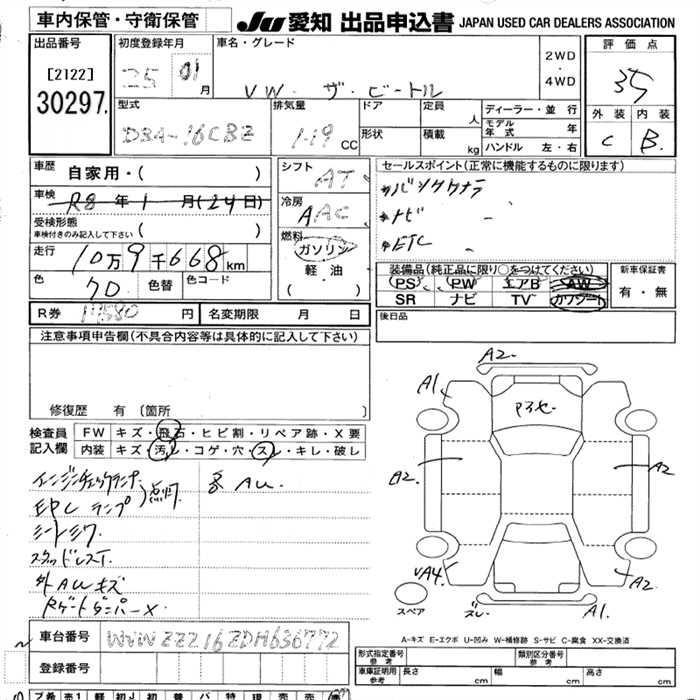 車内保管・守衛保管
JU 愛知 出品申込書 JAPAN USED CAR DEALERS ASSOCIATION
出品番号
[2122]
30297.
初度登録年月
25 01 月
車名・グレード
VW ザ ビートル
2WD
・
4WD
評価点
35
外装 内装
C B.
型式
DBA-16CBZ
排気量
1.19 CC
ドア
形状
定員 人
積載 kg
ディーラー・並行
モデル年式 年
ハンドル 左・右
車歴 自家用・( )
車検 R8 年 1 月(24日)
受検形態
車検付きのみ記入して下さい ( )
走行 10万9千668km
色 クロ 色替 色コード
シフト AT
冷房 AAC
燃料
ガソリン
軽油
( )
セールスポイント(正常に機能するものに限ります)
*ナビ
*ETC
装備品(純正品に限り○をつけてください)
PS PW エアB AW
SR ナビ TV カワシート
新車保証書
有・無
R券 11580 円 名変期限 月 日
後日品
注意事項申告欄(不具合内容等は具体的に記入して下さい)
修復歴 有 〔箇所 〕
検査員記入欄
FW キズ・飛石・ヒビ割・リペア跡・X要
内装 キズ・汚レ・コゲ・穴・スレ・キレ・破レ
エンジンチェックランプ
EPCランプ
点灯
シートシワ
スタッドレスT.
外AWキズ
RゲートダンパーX
冬AW.
A2
A1
B2
A2
A4
A2
ズレ
A1.
スペア
A-キズ E-エクボ U-凹み W-補修跡 S-サビ C-腐食 XX-交換済
車台番号 WVWZZZ16ZDM636772
登録番号
形式指定番号 参考
類別区分番号 参考
車庫証明用 参考 長さ cm 幅 cm 高さ cm